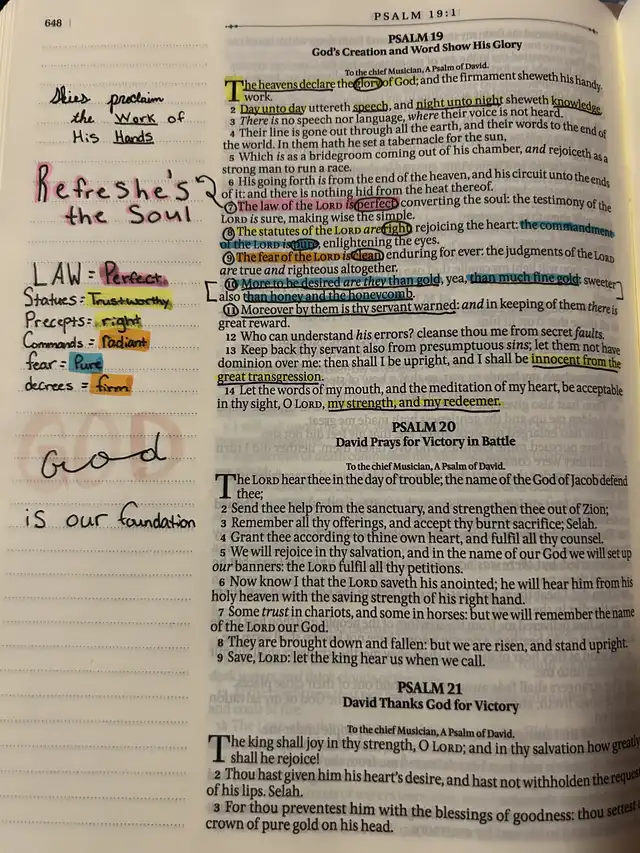 648
PSALM 19:1
Skies proclaim
the Work of
His Hands
Refreshe's
the Soul
LAW = Perfect
Statues = Trustworthy
Precepts = right
Commands = Radiant
fear = Pure
decrees = firm
GOD
God
is our foundation
PSALM 19
God's Creation and Word Show His Glory
To the chief Musician, A Psalm of David.
The heavens declare the glory of God; and the firmament sheweth his handy-
work.
2 Day unto day uttereth speech, and night unto night sheweth knowledge.
3 There is no speech nor language, where their voice is not heard.
4 Their line is gone out through all the earth, and their words to the end of
the world. In them hath he set a tabernacle for the sun,
5 Which is as a bridegroom coming out of his chamber, and rejoiceth as a
strong man to run a race.
6 His going forth is from the end of the heaven, and his circuit unto the ends
of it: and there is nothing hid from the heat thereof.
7 The law of the LORD is perfect, converting the soul: the testimony of the
LORD is sure, making wise the simple.
8 The statutes of the LORD are right, rejoicing the heart: the commandment
of the LORD is pure, enlightening the eyes.
9 The fear of the LORD is clean, enduring for ever: the judgments of the LORD
are true and righteous altogether.
10 More to be desired are they than gold, yea, than much fine gold: sweeter
also than honey and the honeycomb.
11 Moreover by them is thy servant warned: and in keeping of them there is
great reward.
12 Who can understand his errors? cleanse thou me from secret faults.
13 Keep back thy servant also from presumptuous sins; let them not have
dominion over me: then shall I be upright, and I shall be innocent from the
great transgression.
14 Let the words of my mouth, and the meditation of my heart, be acceptable
in thy sight, O LORD, my strength, and my redeemer.
PSALM 20
David Prays for Victory in Battle
To the chief Musician, A Psalm of David.
The LORD hear thee in the day of trouble; the name of the God of Jacob defend
thee;
2 Send thee help from the sanctuary, and strengthen thee out of Zion;
3 Remember all thy offerings, and accept thy burnt sacrifice; Selah.
4 Grant thee according to thine own heart, and fulfil all thy counsel.
5 We will rejoice in thy salvation, and in the name of our God we will set up
our banners: the LORD fulfil all thy petitions.
6 Now know I that the LORD saveth his anointed; he will hear him from his
holy heaven with the saving strength of his right hand.
7 Some trust in chariots, and some in horses: but we will remember the name
of the LORD our God.
8 They are brought down and fallen: but we are risen, and stand upright.
9 Save, LORD: let the king hear us when we call.
PSALM 21
David Thanks God for Victory
To the chief Musician, A Psalm of David.
The king shall joy in thy strength, O LORD; and in thy salvation how greatly
shall he rejoice!
2 Thou hast given him his heart's desire, and hast not withholden the request
of his lips. Selah.
3 For thou preventest him with the blessings of goodness: thou settest a
crown of pure gold on his head.